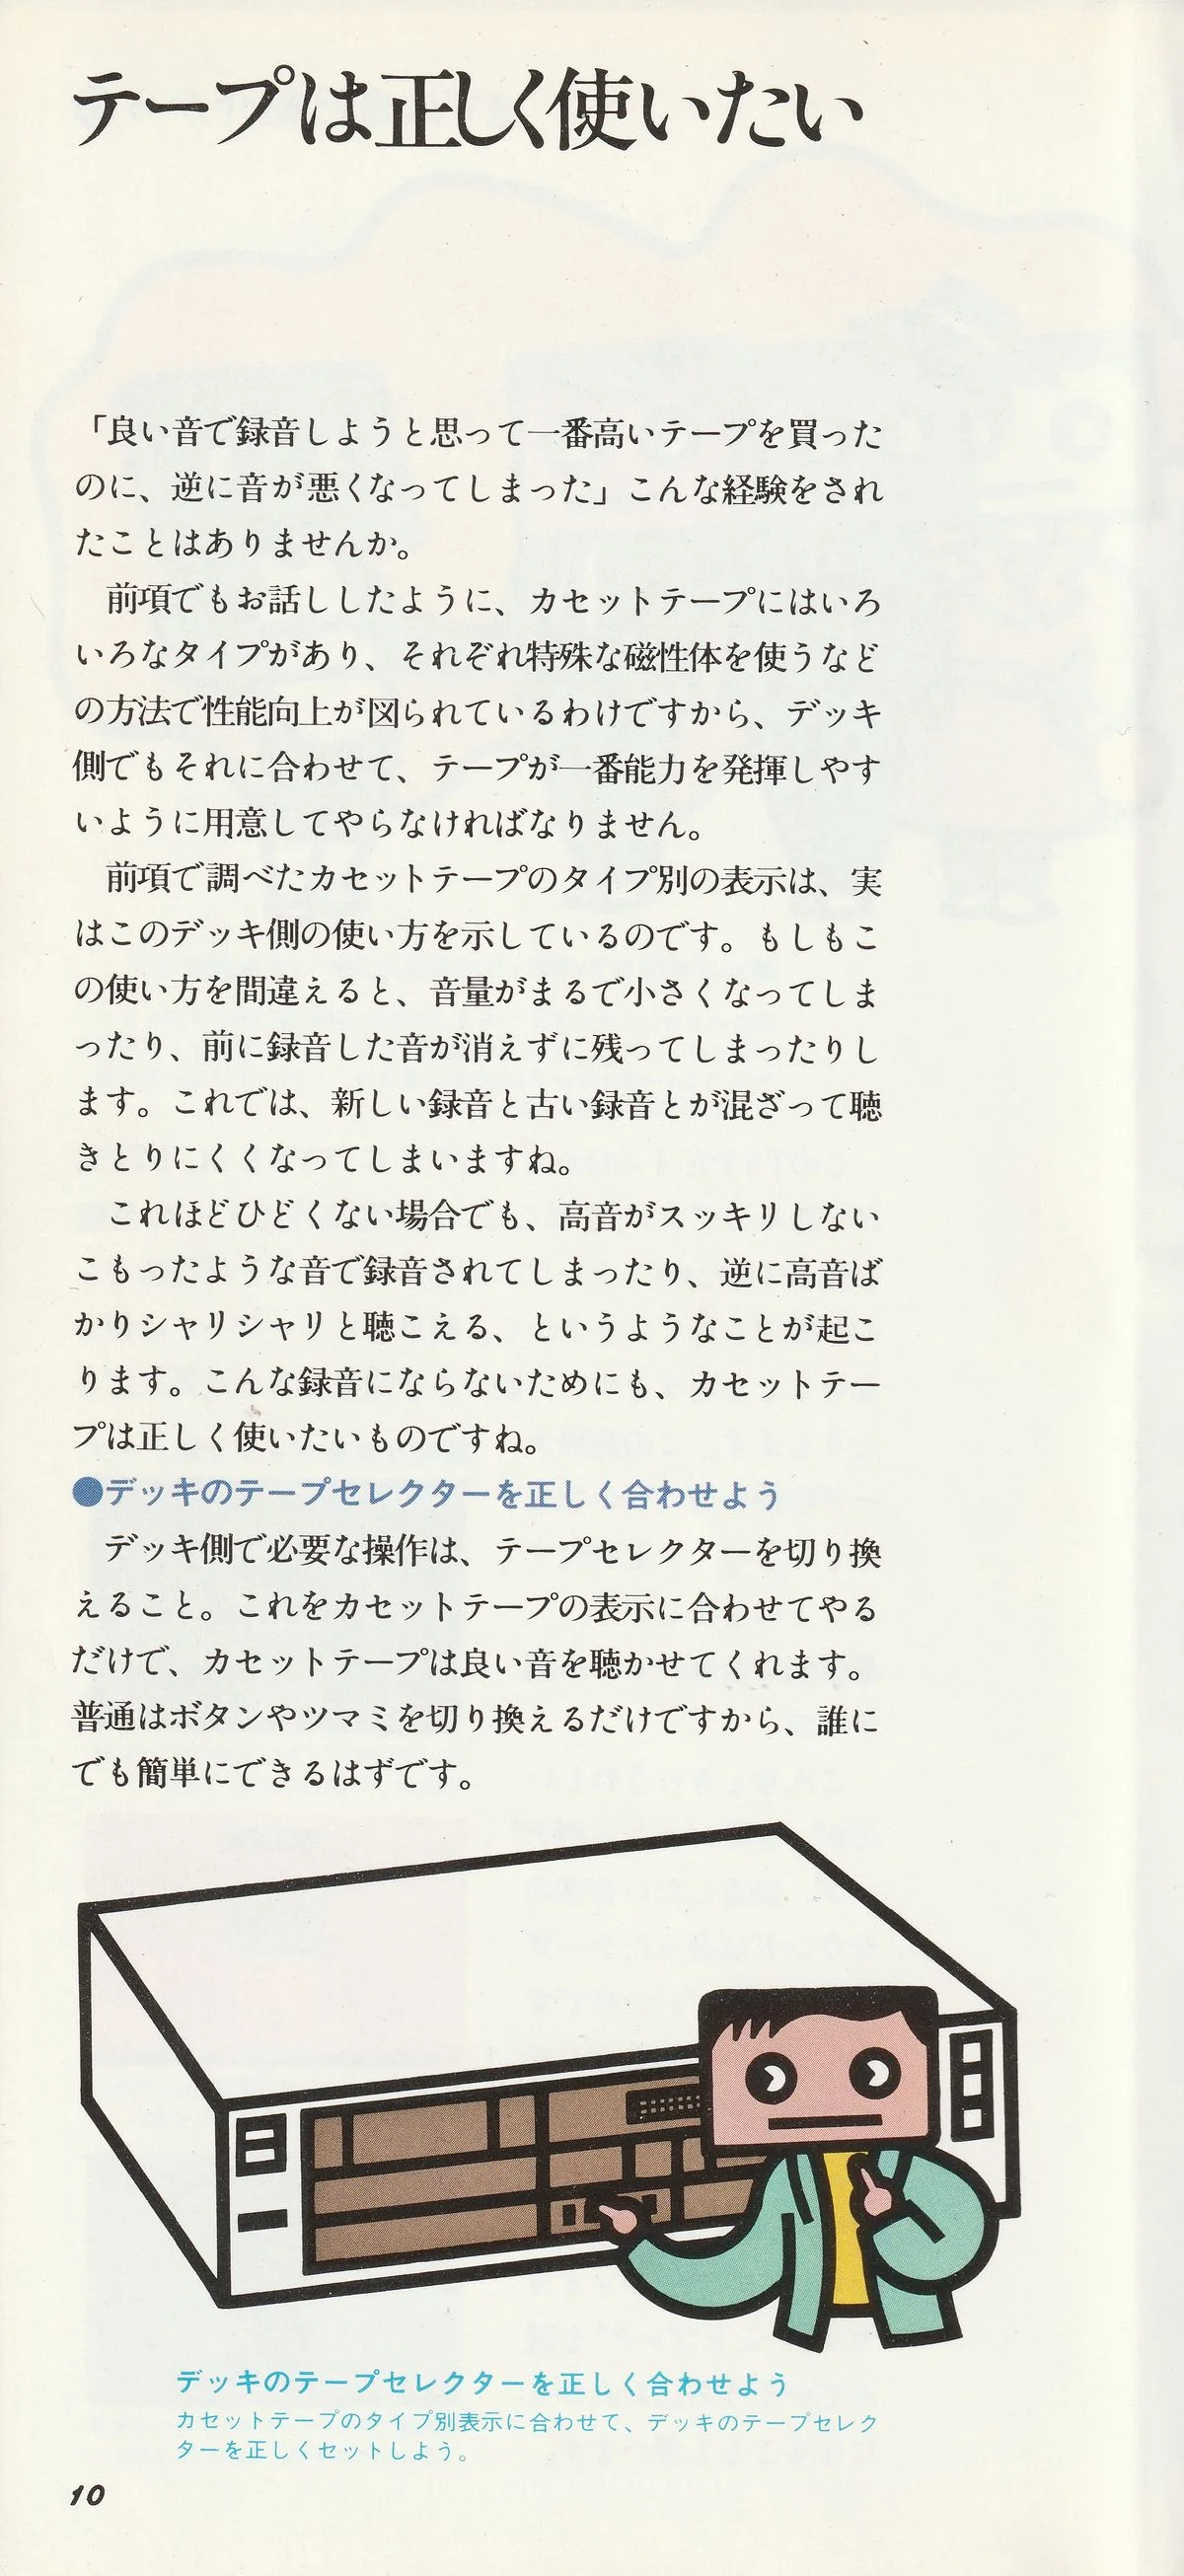 テープは正しく使いたい
「良い音で録音しようと思って一番高いテープを買った
のに、逆に音が悪くなってしまった」こんな経験をされ
たことはありませんか。
前項でもお話ししたように、カセットテープにはいろ
いろなタイプがあり、それぞれ特殊な磁性体を使うなど
の方法で性能向上が図られているわけですから、デッキ
側でもそれに合わせて、テープが一番能力を発揮しやす
いように用意してやらなければなりません。
前項で調べたカセットテープのタイプ別の表示は、実
はこのデッキ側の使い方を示しているのです。もしもこ
の使い方を間違えると、音量がまるで小さくなってしま
ったり、前に録音した音が消えずに残ってしまったりし
ます。これでは、新しい録音と古い録音とが混ざって聴
きとりにくくなってしまいますね。
これほどひどくない場合でも、高音がスッキリしない
こもったような音で録音されてしまったり、逆に高音ば
かりシャリシャリと聴こえる、というようなことが起こ
ります。こんな録音にならないためにも、カセットテー
プは正しく使いたいものですね。
●デッキのテープセレクターを正しく合わせよう
デッキ側で必要な操作は、テープセレクターを切り換
えること。これをカセットテープの表示に合わせてやる
だけで、カセットテープは良い音を聴かせてくれます。
普通はボタンやツマミを切り換えるだけですから、誰に
でも簡単にできるはずです。
デッキのテープセレクターを正しく合わせよう
カセットテープのタイプ別表示に合わせて、デッキのテープセレク
ターを正しくセットしよう。
10